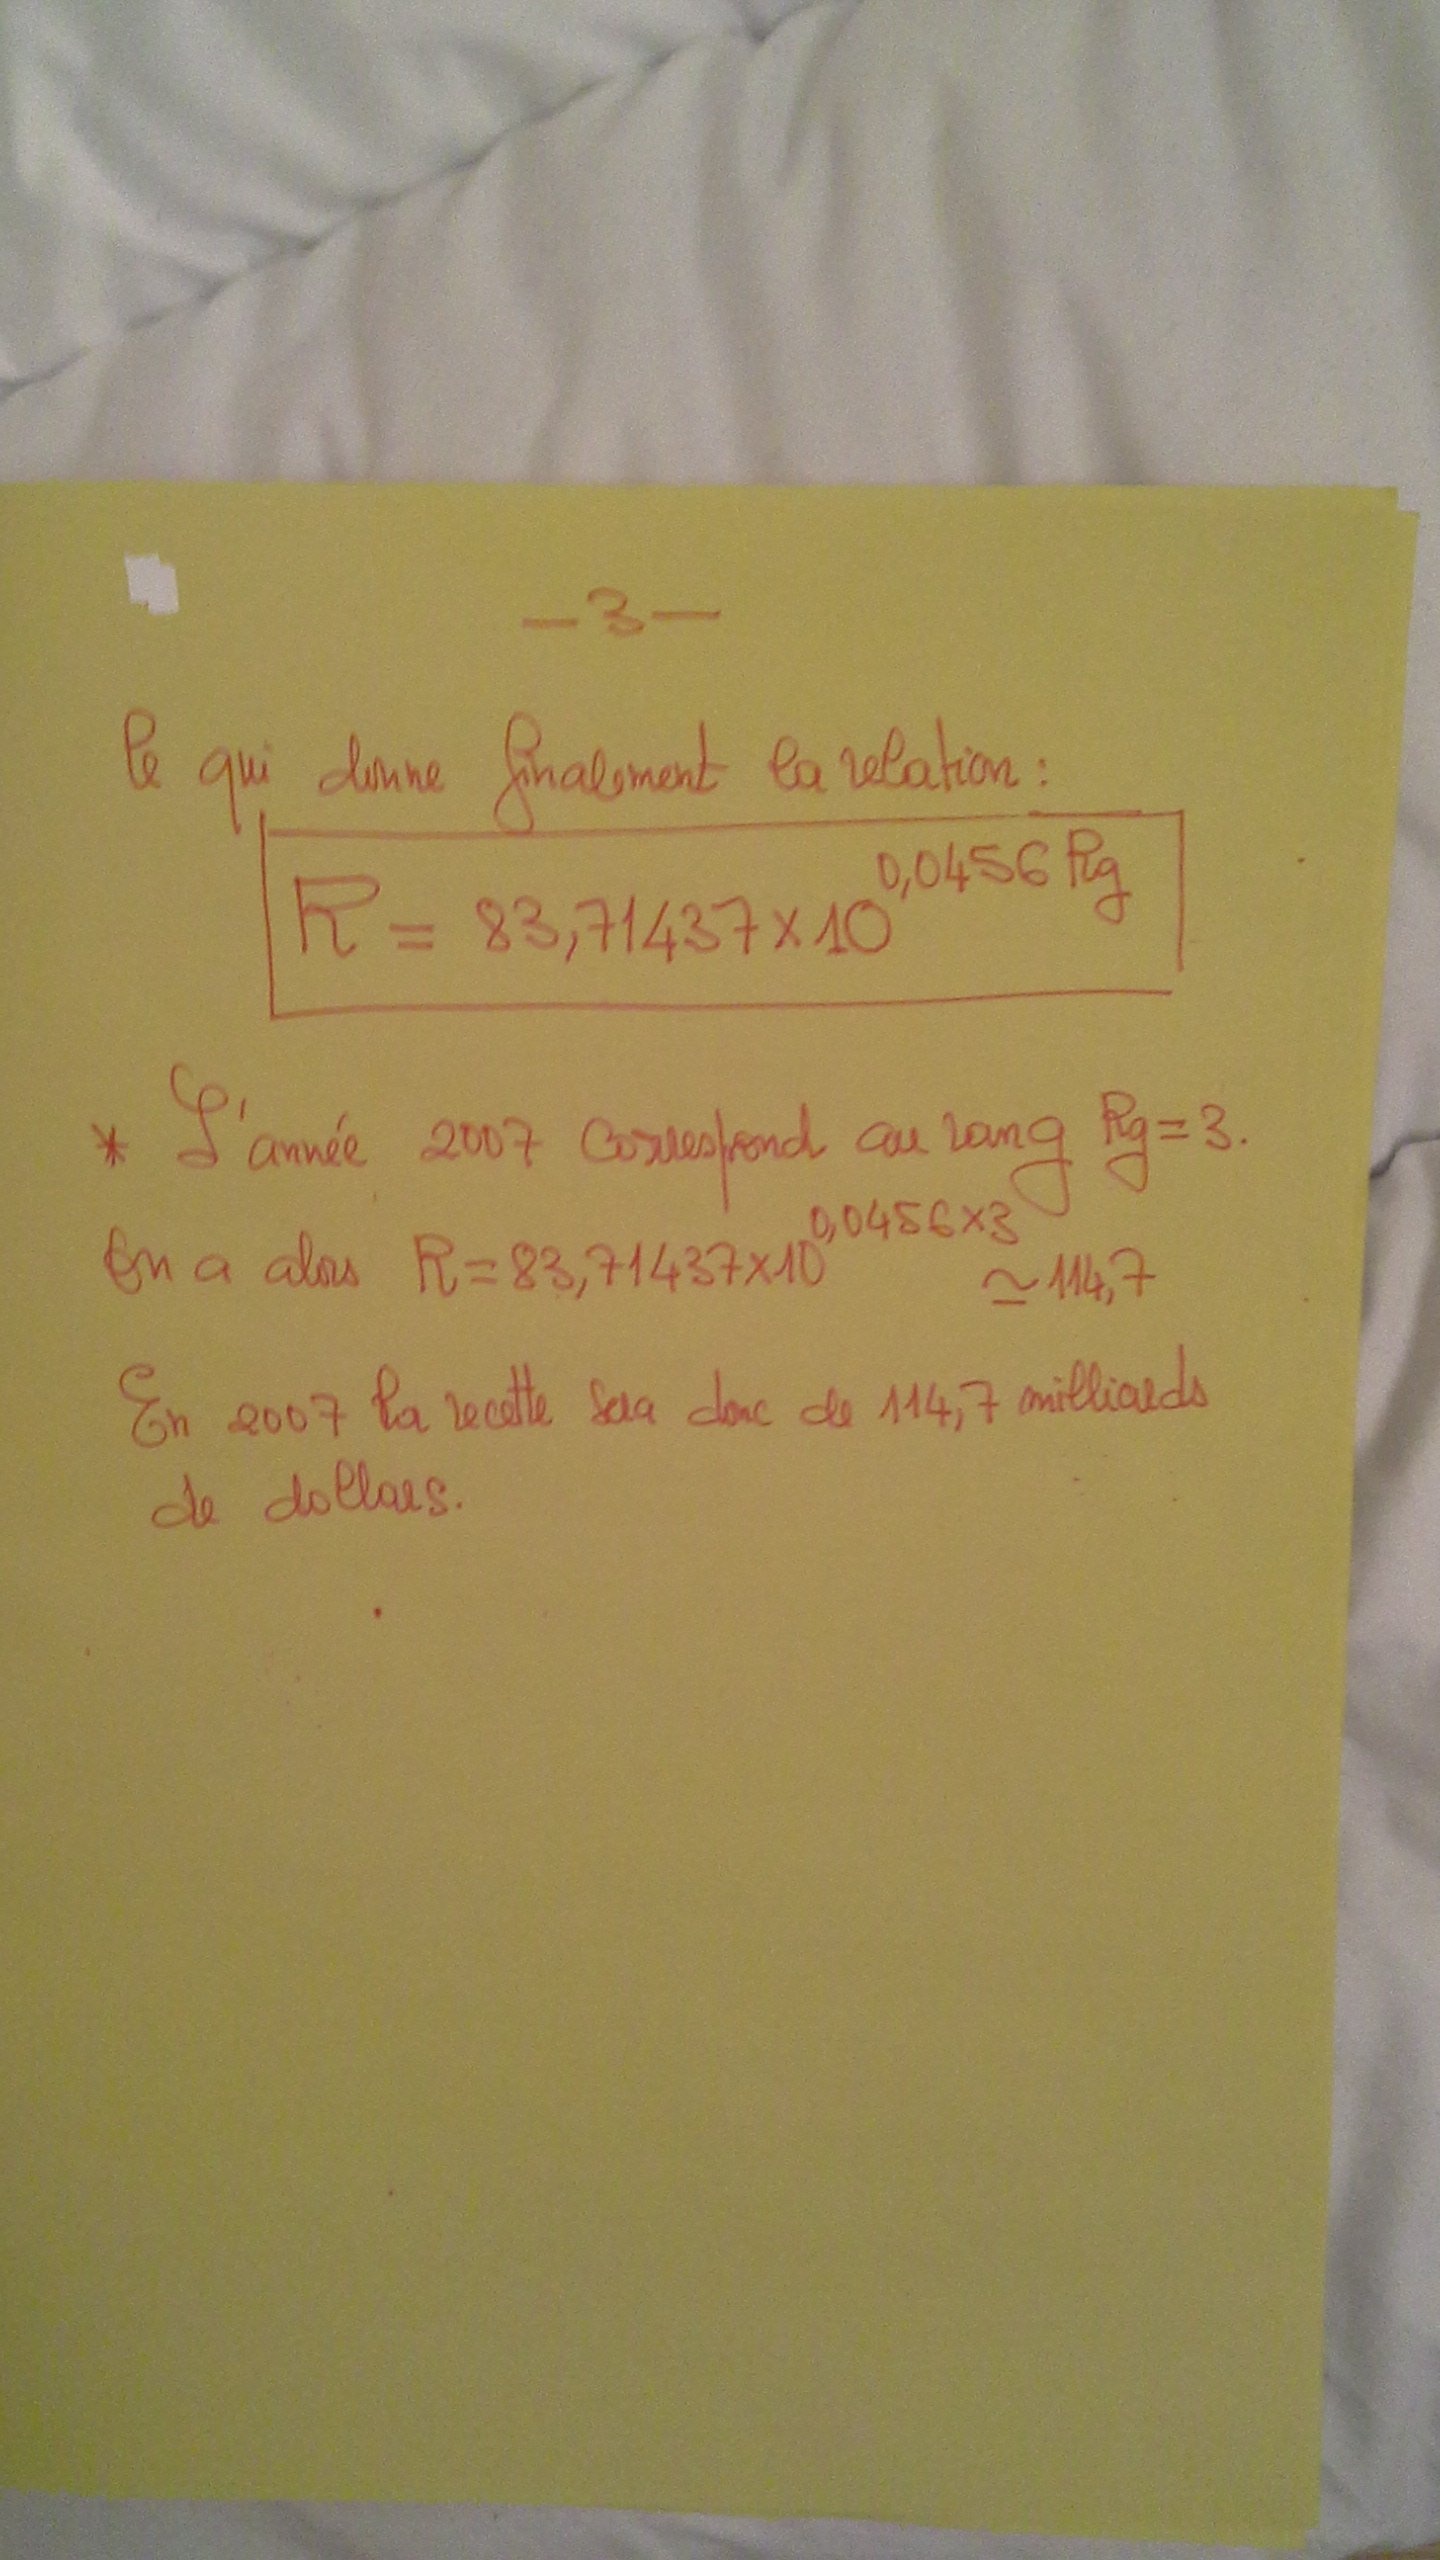 — 3 —
Ce qui donne finalement la relation :
R = 83,71437 x 10^0,0456 Rg
* L'année 2007 correspond au rang Rg = 3.
On a alors R = 83,71437 x 10^0,0456 x 3 ≃ 114,7
En 2007 la recette sera donc de 114,7 milliards
de dollars.